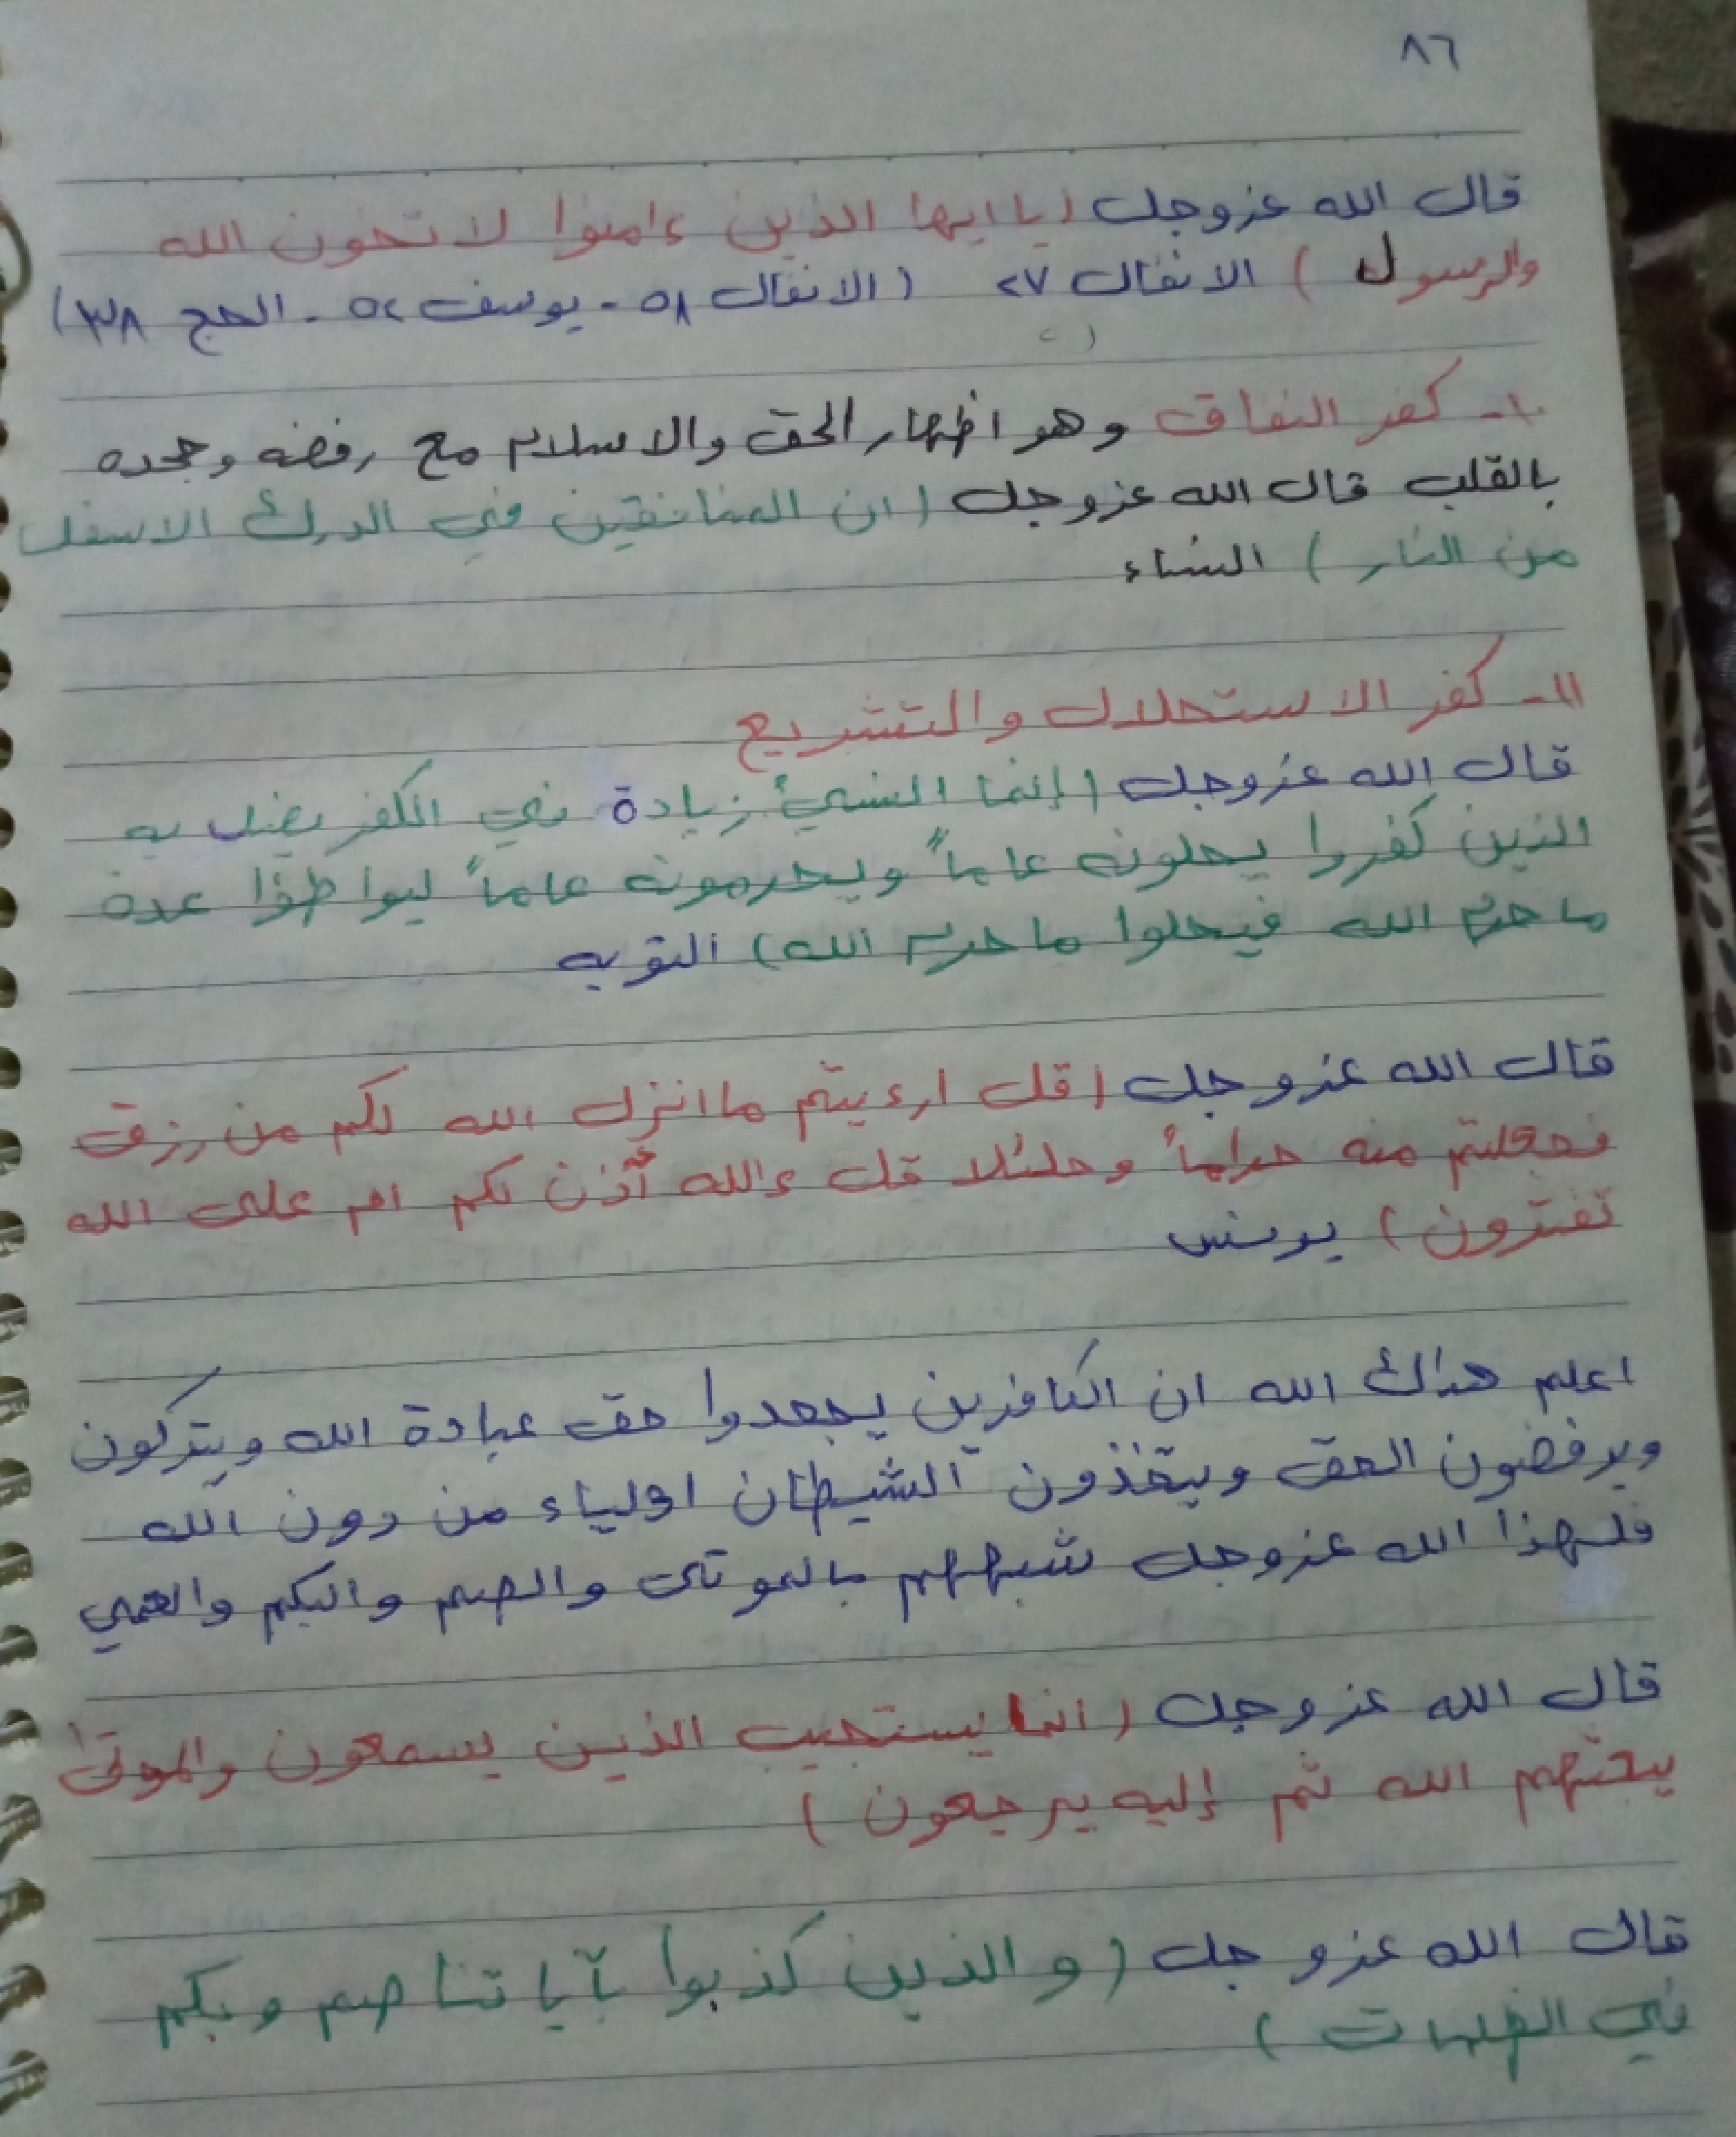 ٨٦
قال الله عزوجل (يا ايها الذين ءامنوا لا تخون الله
والرسول) الانفال ٢٧ (الانفال ٥٨ - يوسف ٥٢ - الحج ٣٨)
١٠- كفر النفاق وهو اظهار الحق والاسلام مع رفضه وجحده
بالقلب قال الله عزوجل (ان المنافقين في الدرك الاسفل
من النار) النساء
١١- كفر الاستحلال والتشريع
قال الله عزوجل (إنما النسيءُ زيادة في الكفر يضل به
الذين كفروا يحلونه عاماً ويحرمونه عاماً ليواطؤا عدة
ما حرم الله فيحلوا ما حرم الله) التوبه
قال الله عزوجل (قل ارءيتم ما انزل الله لكم من رزق
فجعلتم منه حراماً وحلٰلا قل ءالله أذن لكم ام على الله
تفترون) يونس
اعلم هداك الله ان الكافرين يجحدوا حق عبادة الله ويتركون
ويرفضون الحق ويتخذون الشيطان اولياء من دون الله
فلهذا الله عزوجل شبههم بالموتى والصم والبكم والعمي
قال الله عزوجل (انما يستجيب الذين يسمعون والموتىٰ
يبعثهم الله ثم إليه يرجعون)
قال الله عزوجل (والذين كذبوا بآياتنا صم وبكم
في الظلمات)